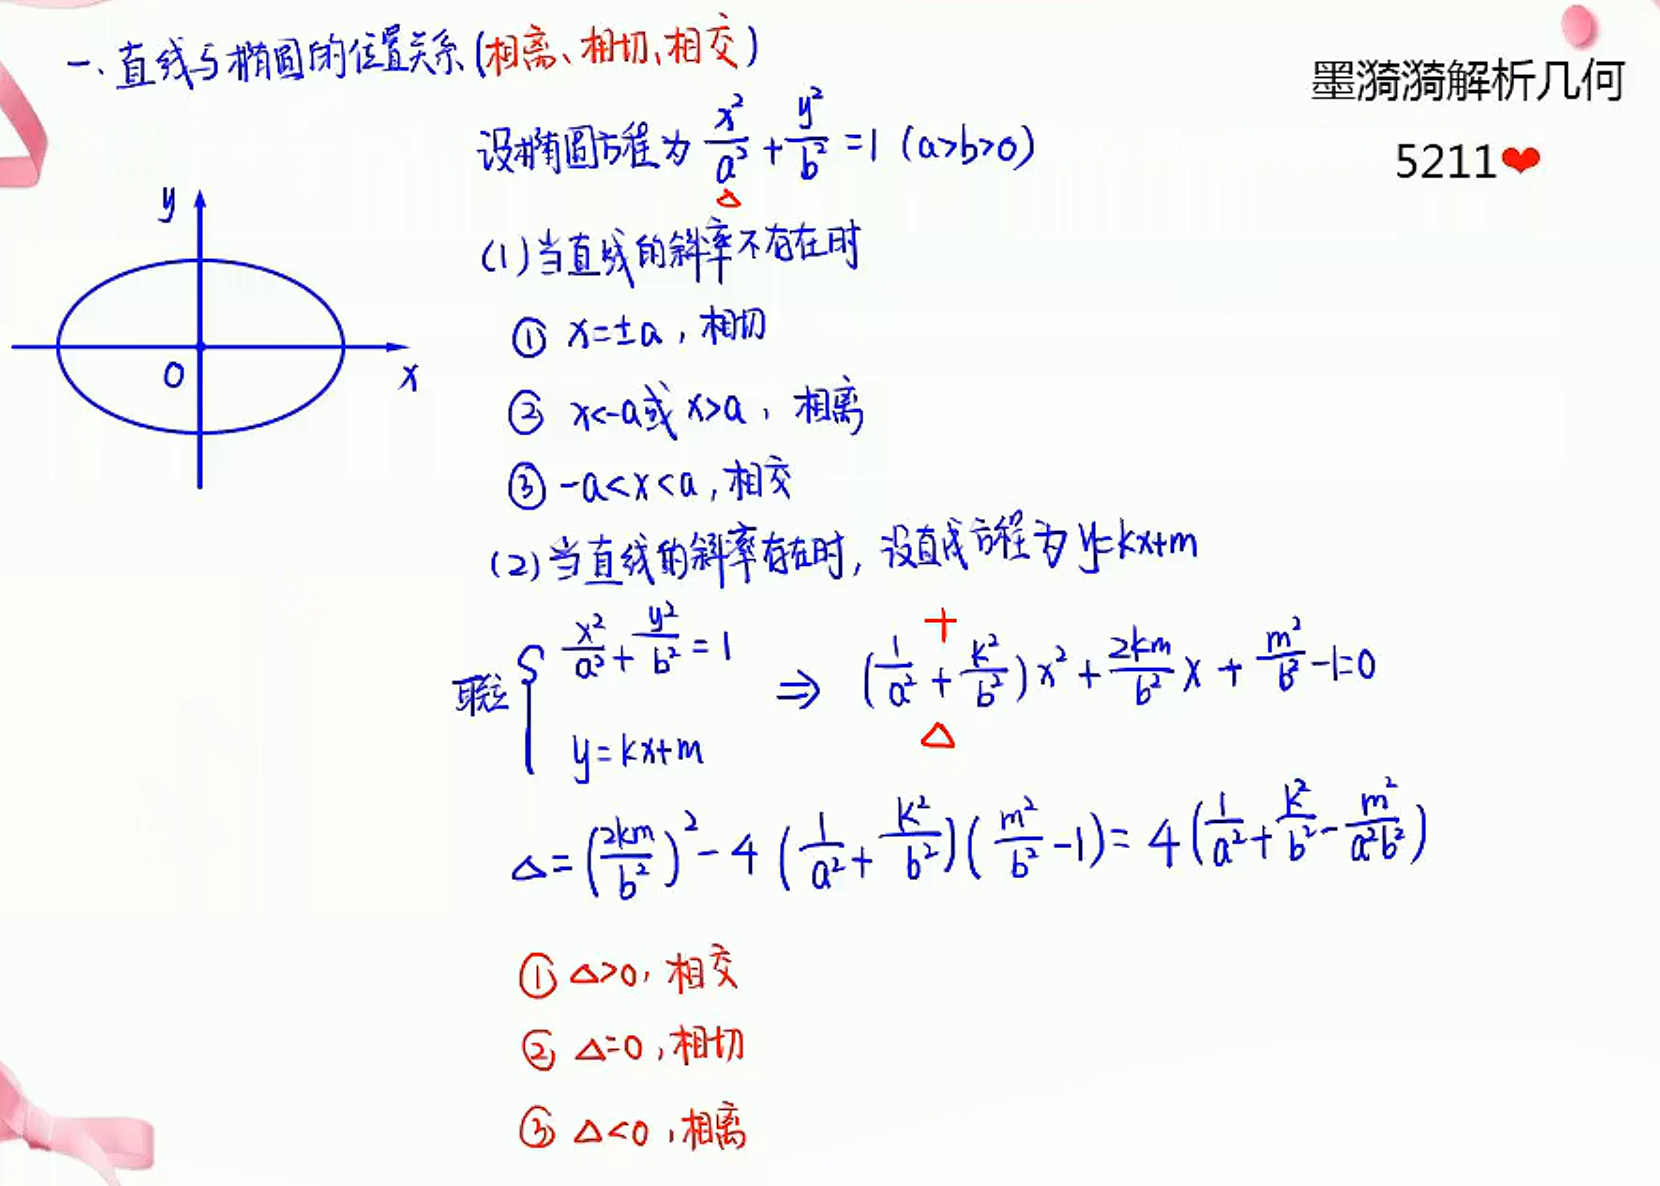 一、直线与椭圆的位置关系(相离、相切、相交)
墨漪漪解析几何
5211❤
设椭圆方程为 x²/a² + y²/b² = 1 (a>b>0)
△
y
O
x
(1)当直线的斜率不存在时
① x=±a，相切
② x<-a或x>a，相离
③ -a<x<a，相交
(2)当直线的斜率存在时，设直线方程为y=kx+m
联立 { x²/a² + y²/b² = 1
y=kx+m
⇒ (1/a² + k²/b²)x² + 2km/b² x + m²/b² -1=0
+
△
△=(2km/b²)² - 4(1/a² + k²/b²)(m²/b² -1)= 4(1/a² + k²/b² - m²/a²b²)
① △>0，相交
② △=0，相切
③ △<0，相离